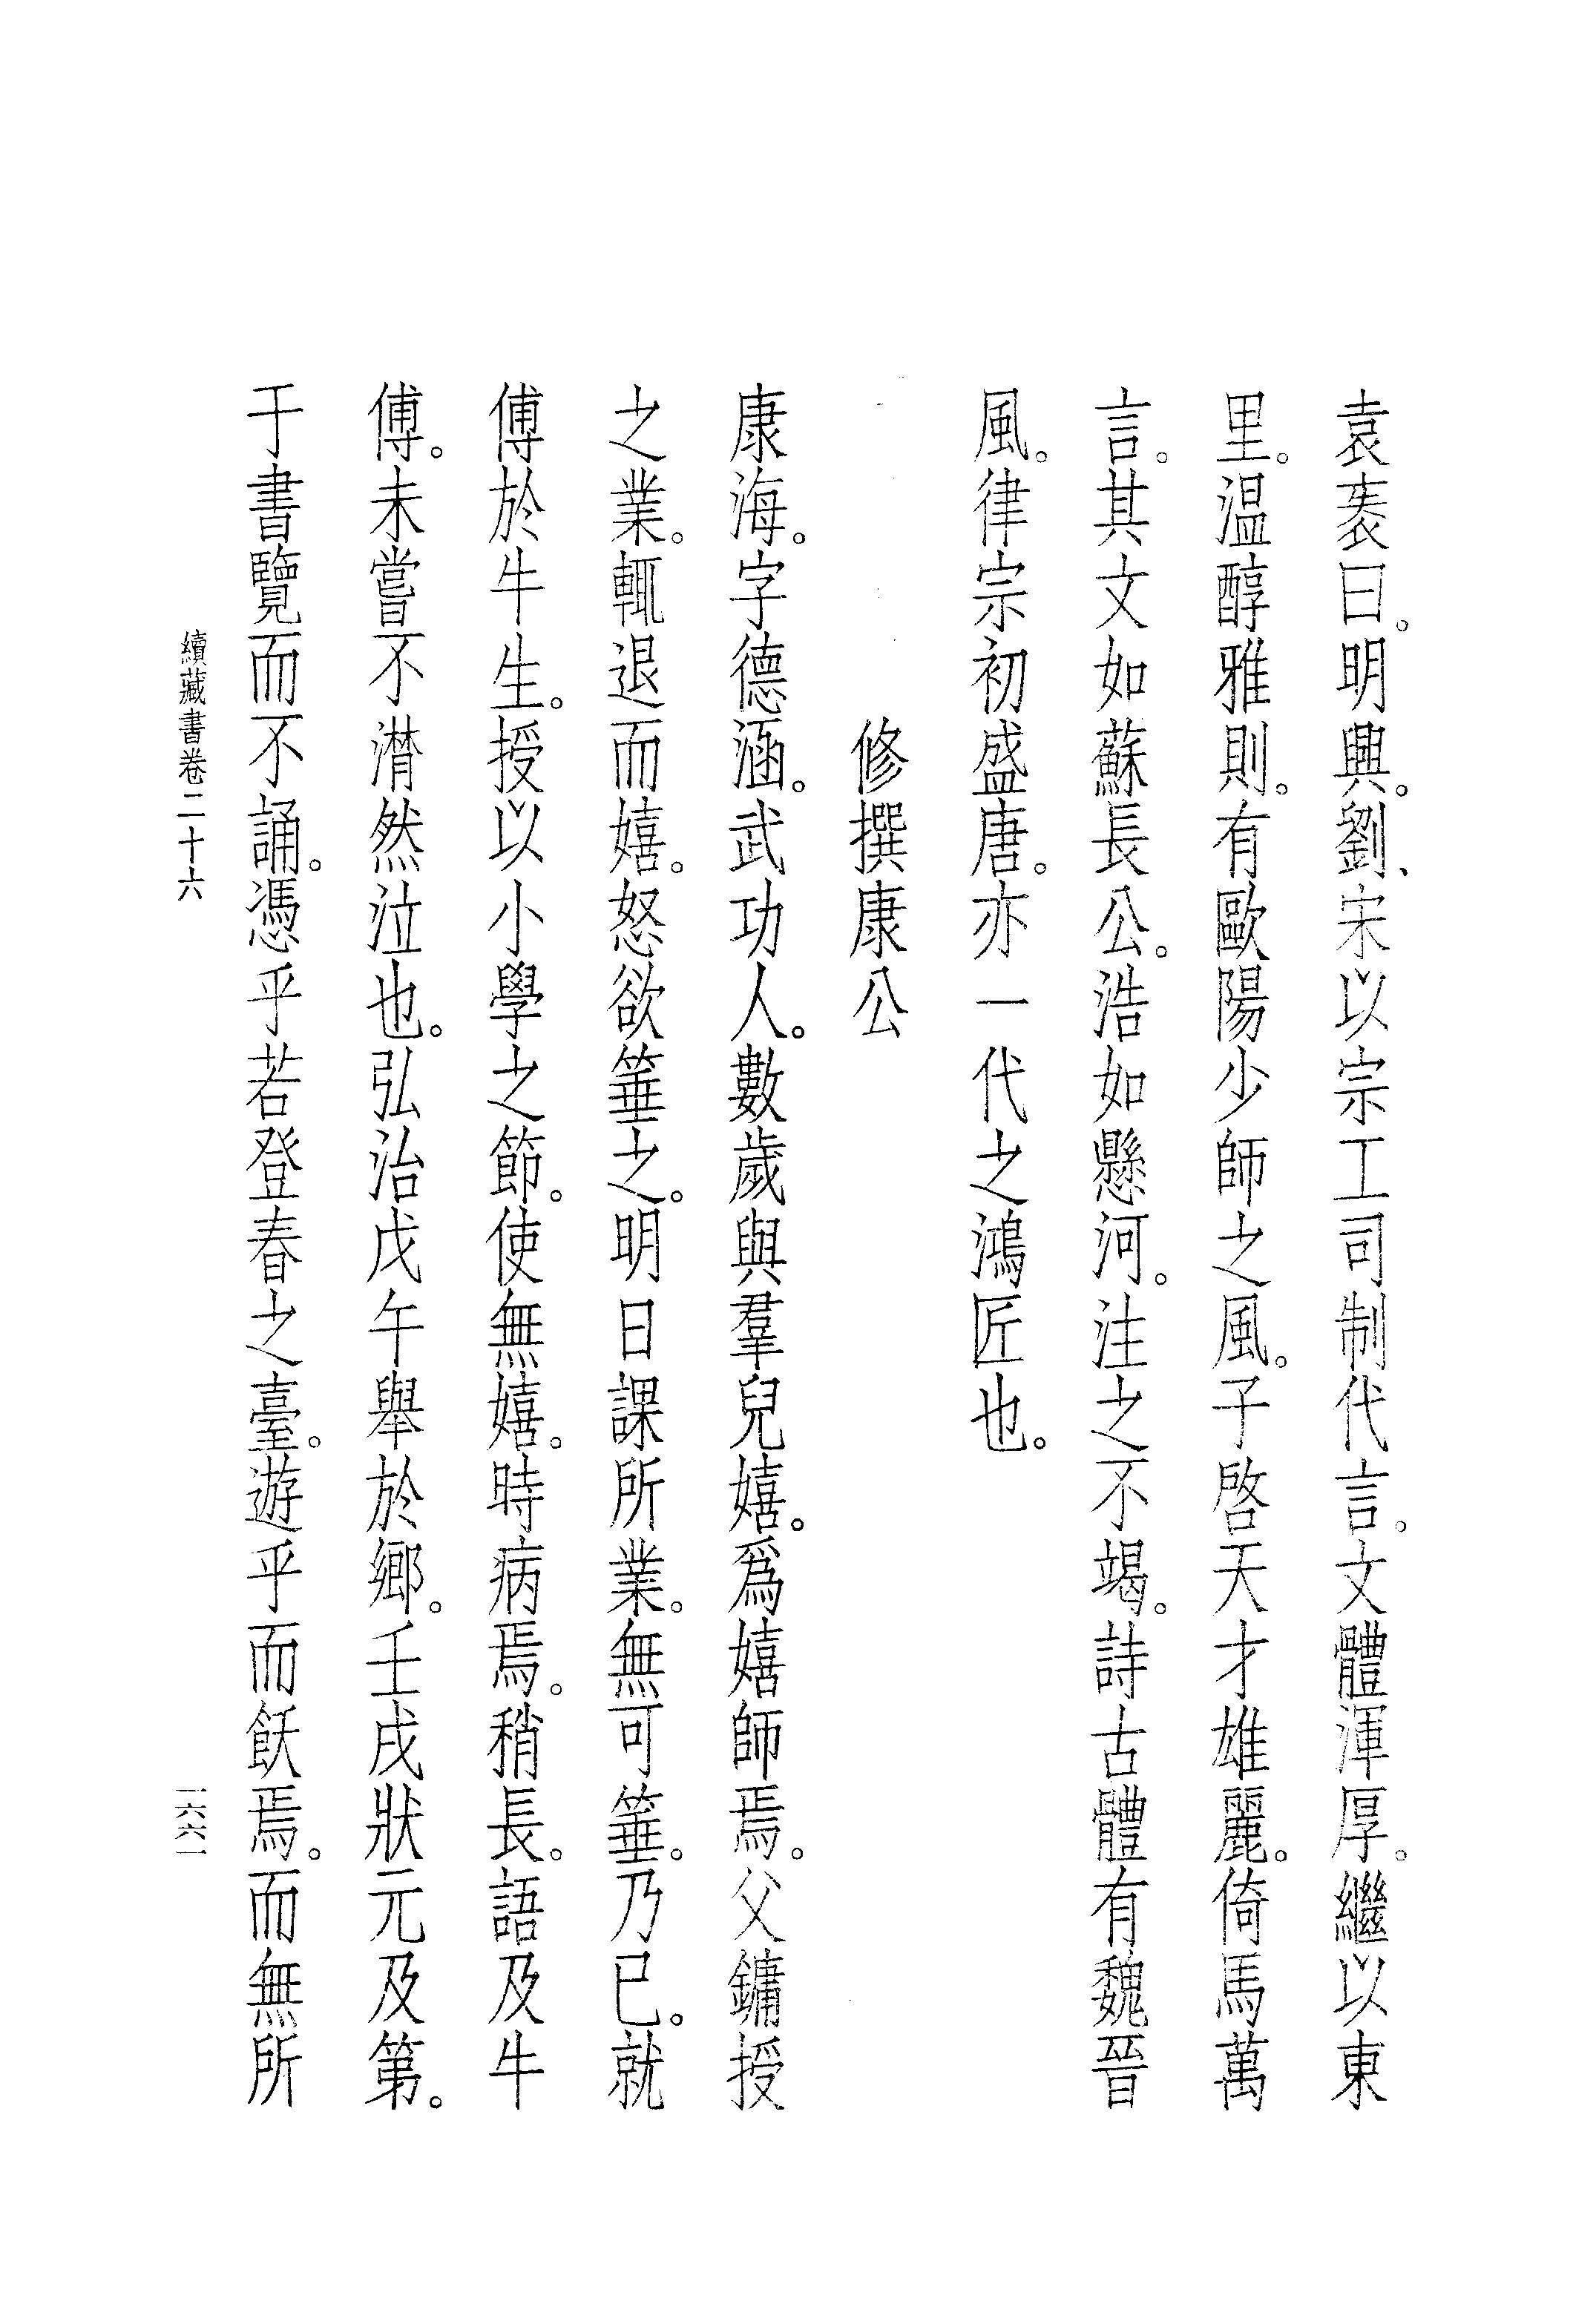 袁袠曰。明興。劉、宋以宗工司制代言。文體渾厚。繼以東
里。温醇雅則。有歐陽少師之風。子啓天才雄麗。倚馬萬
言。其文如蘇長公。浩如懸河。注之不竭。詩古體有魏晉
風。律宗初盛唐。亦一代之鴻匠也。
修撰康公
康海。字德涵。武功人。數歲與羣兒嬉。爲嬉師焉。父鏞授
之業。輒退而嬉。怒欲箠之。明日課所業。無可箠。乃已。就
傅於牛生。授以小學之節。使無嬉。時病焉。稍長。語及牛
傅。未嘗不潸然泣也。弘治戊午舉於鄉。壬戌狀元及第。
于書覽而不誦。憑乎若登春之臺。遊乎而飫焉。而無所
續藏書卷二十六
一六六一